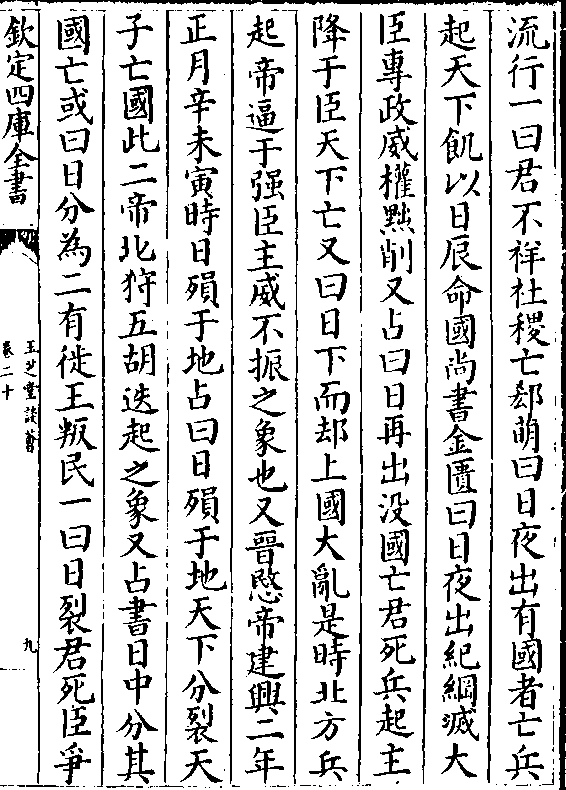 流行一曰君不祥社稷亡郄萌曰日夜出有國者亡兵
起天下飢以日辰命國尚書金匱曰日夜出紀綱滅大
臣專政威權黜削又占曰日再出没國亡君死兵起主
降于臣天下亡又曰日下而却上國大亂是時北方兵
起帝逼于强臣主威不振之象也又晉愍帝建興二年
正月辛未寅時日殞于地占曰日殞于地天下分裂天
子亡國此二帝北狩五胡迭起之象又占書日中分其
國亡或曰日分為二有徙王叛民一曰日裂君死臣爭
欽定四庫全書
玉芝堂談薈
卷二十
九